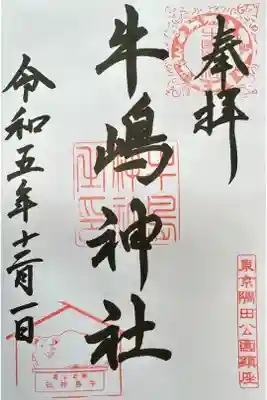 奉拝
牛嶋神社
令和五年十二月一日
東京隅田公園鎮座
牛嶋神社